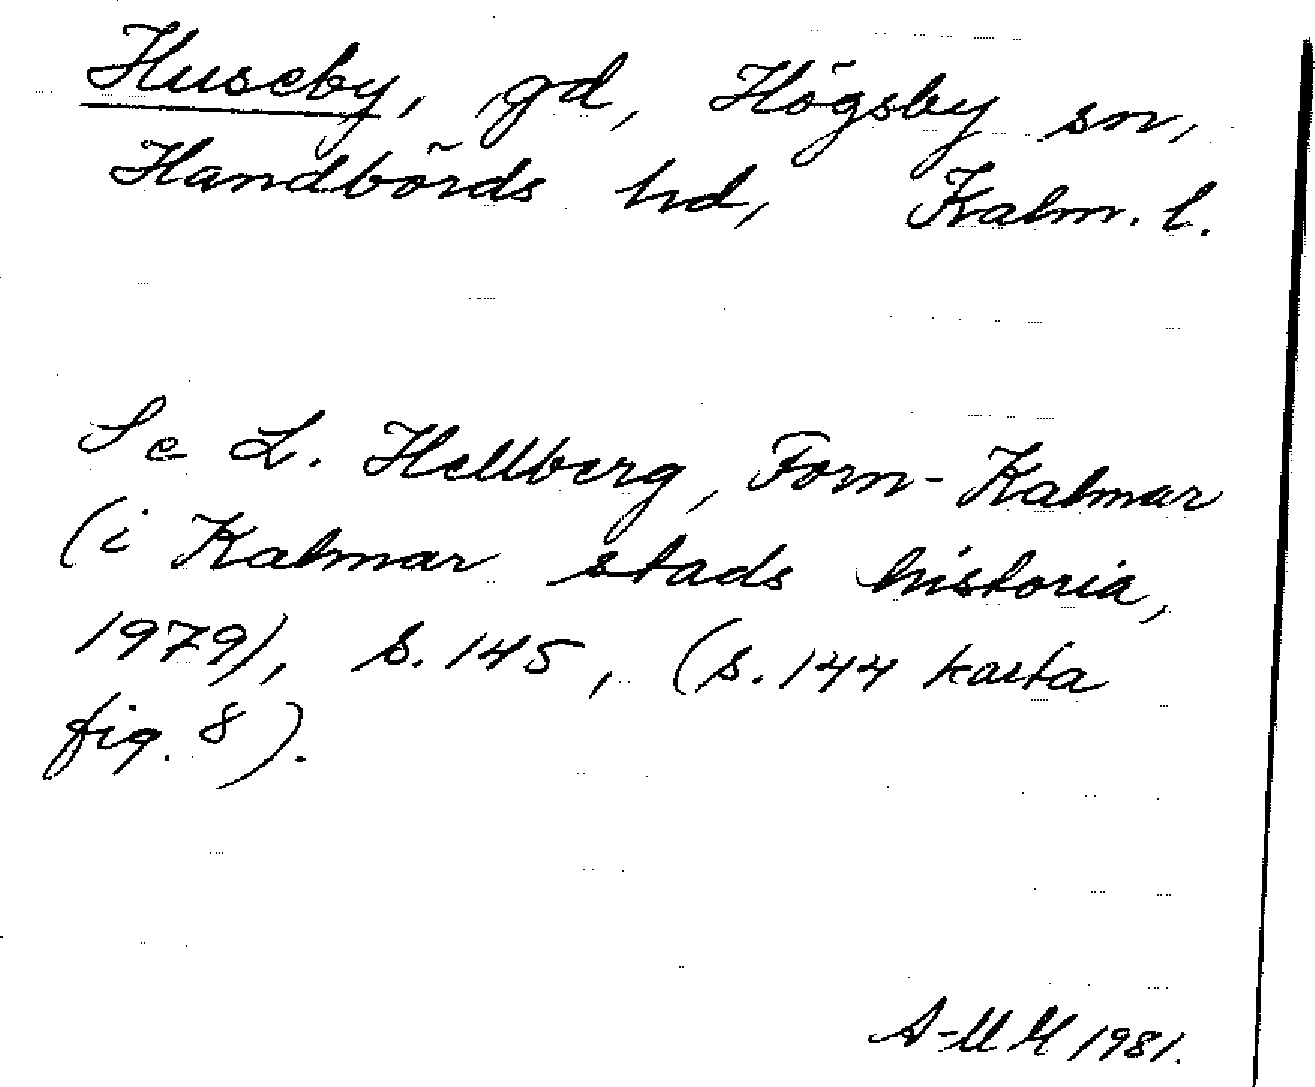 Huseby, gd, Högsby sn,
Handbörds hd, Kalm. l.
Se L. Hellberg, Forn-Kalmar
(i Kalmar stads historia,
1979), s. 145, (s. 144 karta
fig. 8).
A-MH 1981.